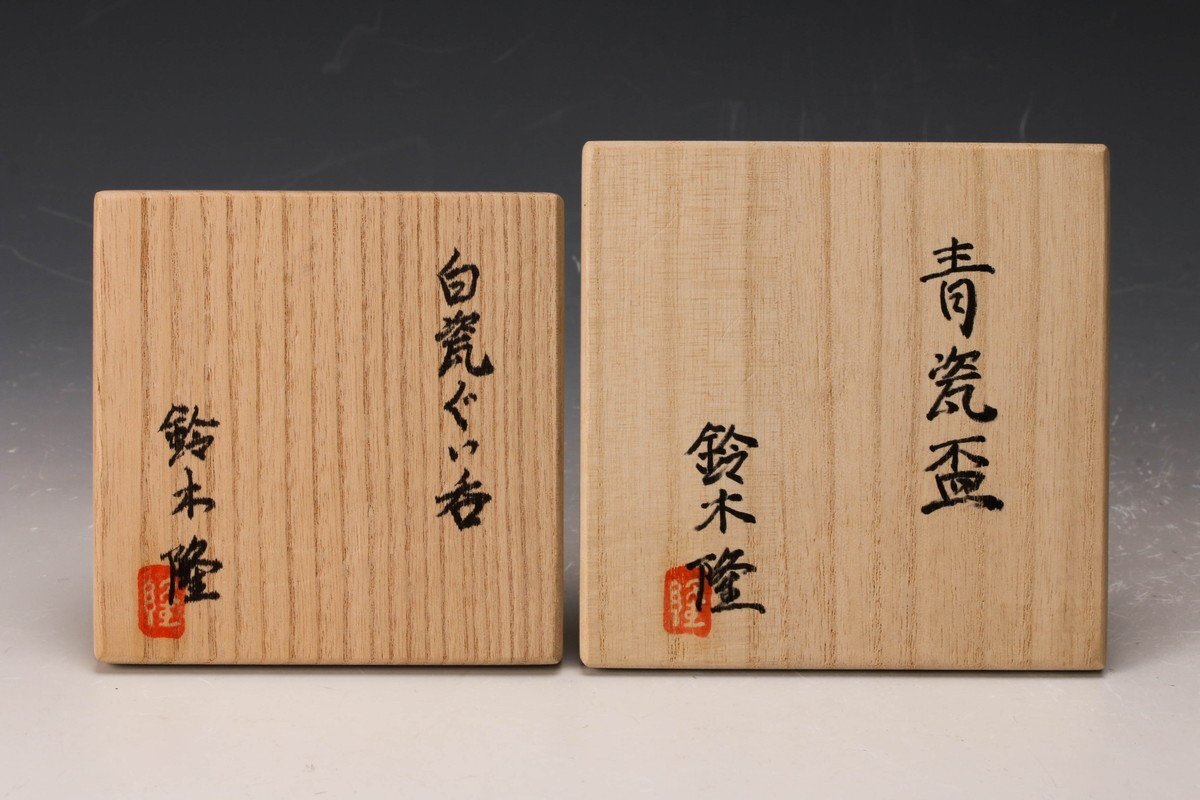 白瓷ぐい呑
鈴木隆
隆
青瓷盃
鈴木隆
隆